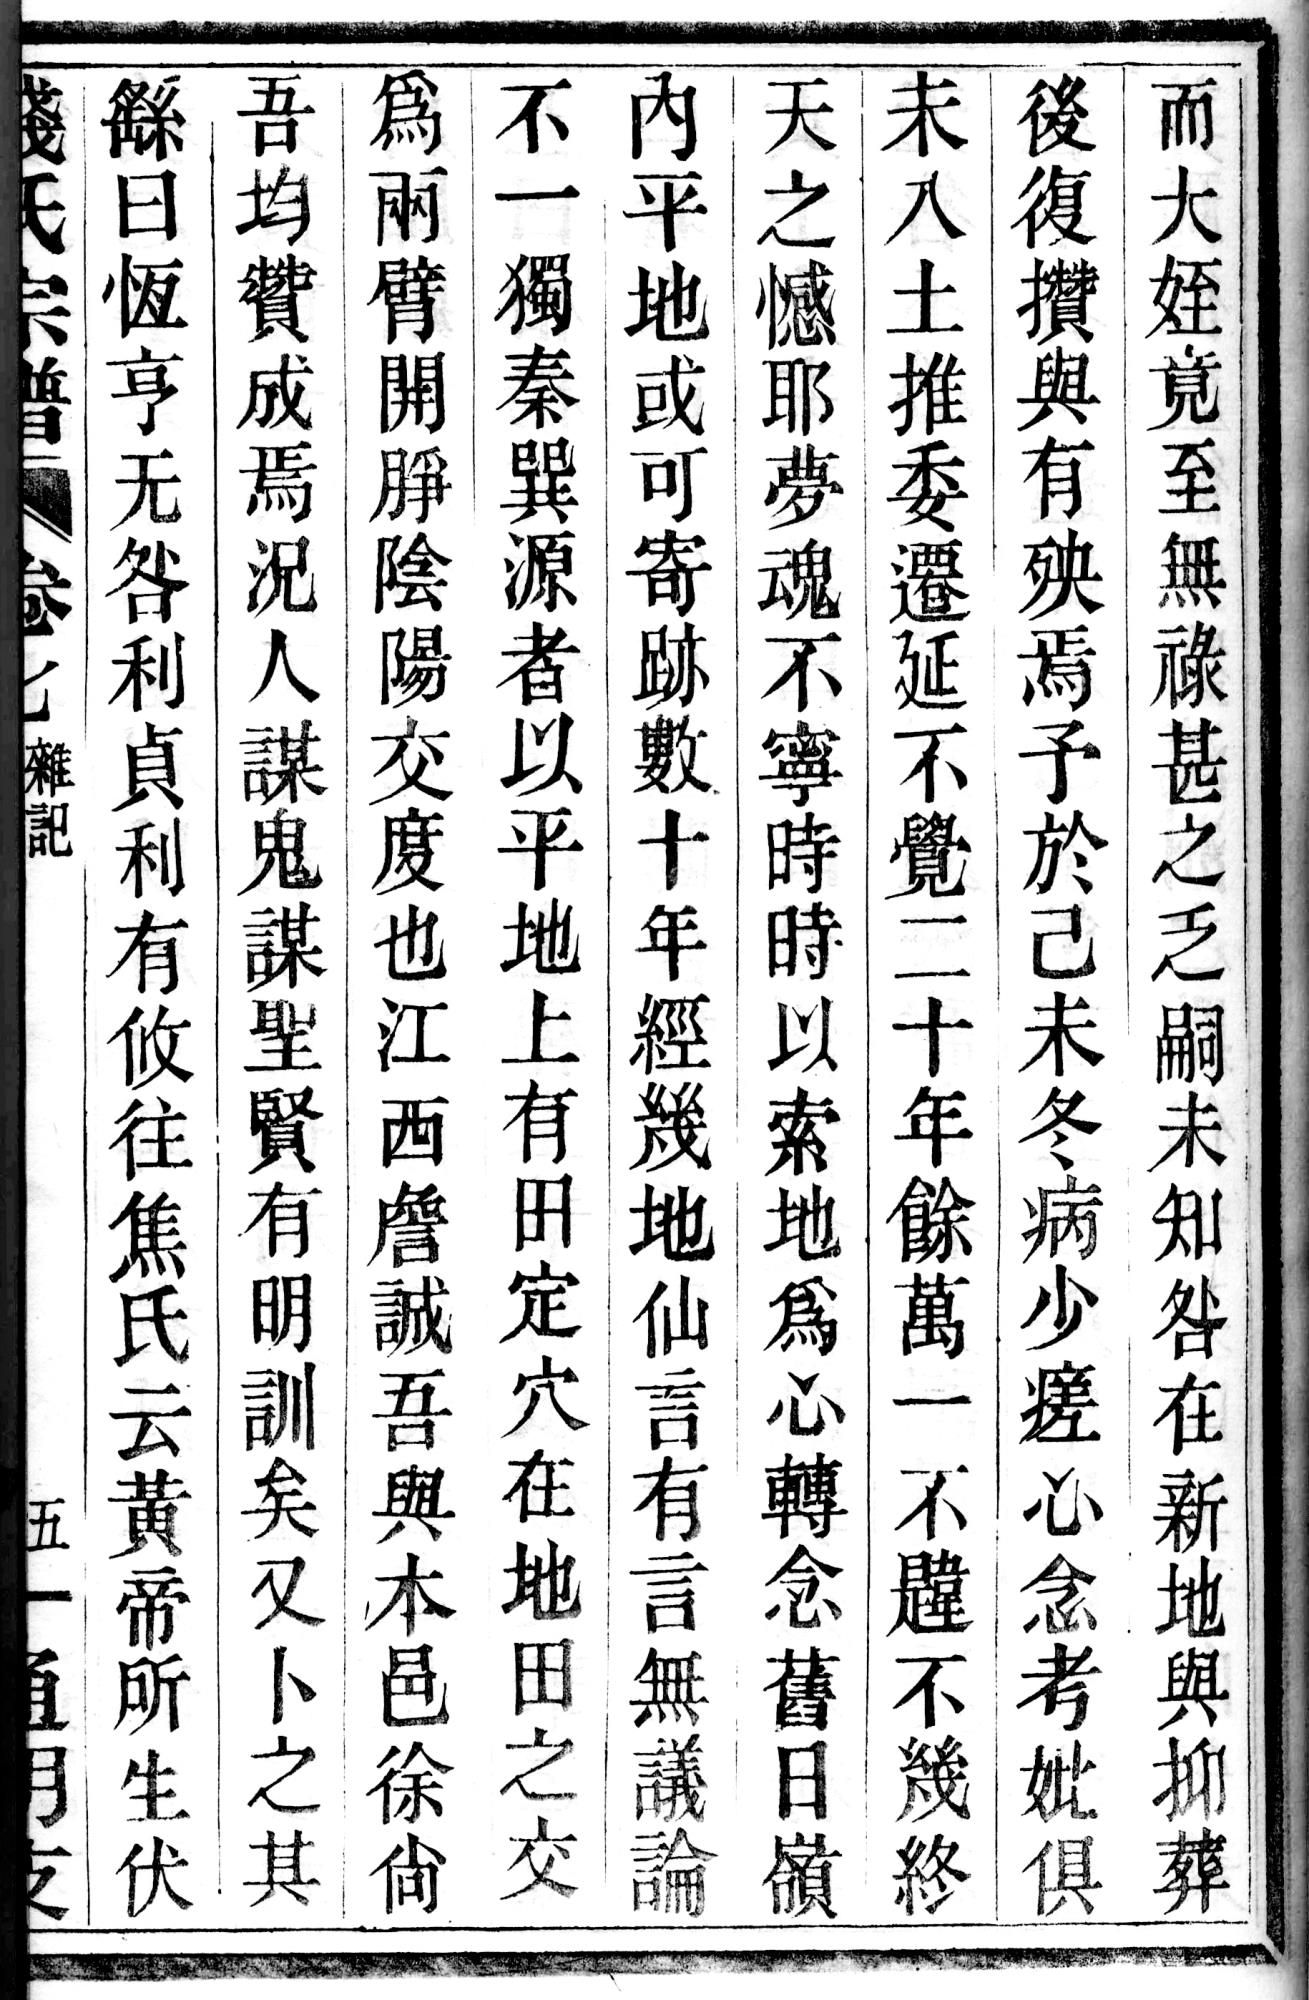 而大姪竟至無祿甚之乏嗣未知咎在新地與抑葬
後復攢與有殃焉予於己未冬病少瘥心念考妣俱
未入土推委遷延不覺二十年餘萬一不韙不幾終
天之憾耶夢魂不寧時時以索地爲心轉念舊日嶺
內平地或可寄跡數十年經幾地仙言有言無議論
不一獨秦巽源者以平地上有田定穴在地田之交
爲兩臂開脝陰陽交度也江西詹誠吾與本邑徐尙
吾均贊成焉況人謀鬼謀聖賢有明訓矣又卜之其
繇曰恆亨无咎利貞利有攸往焦氏云黃帝所生伏
錢氏宗譜 卷七 雜記 五一 通明支